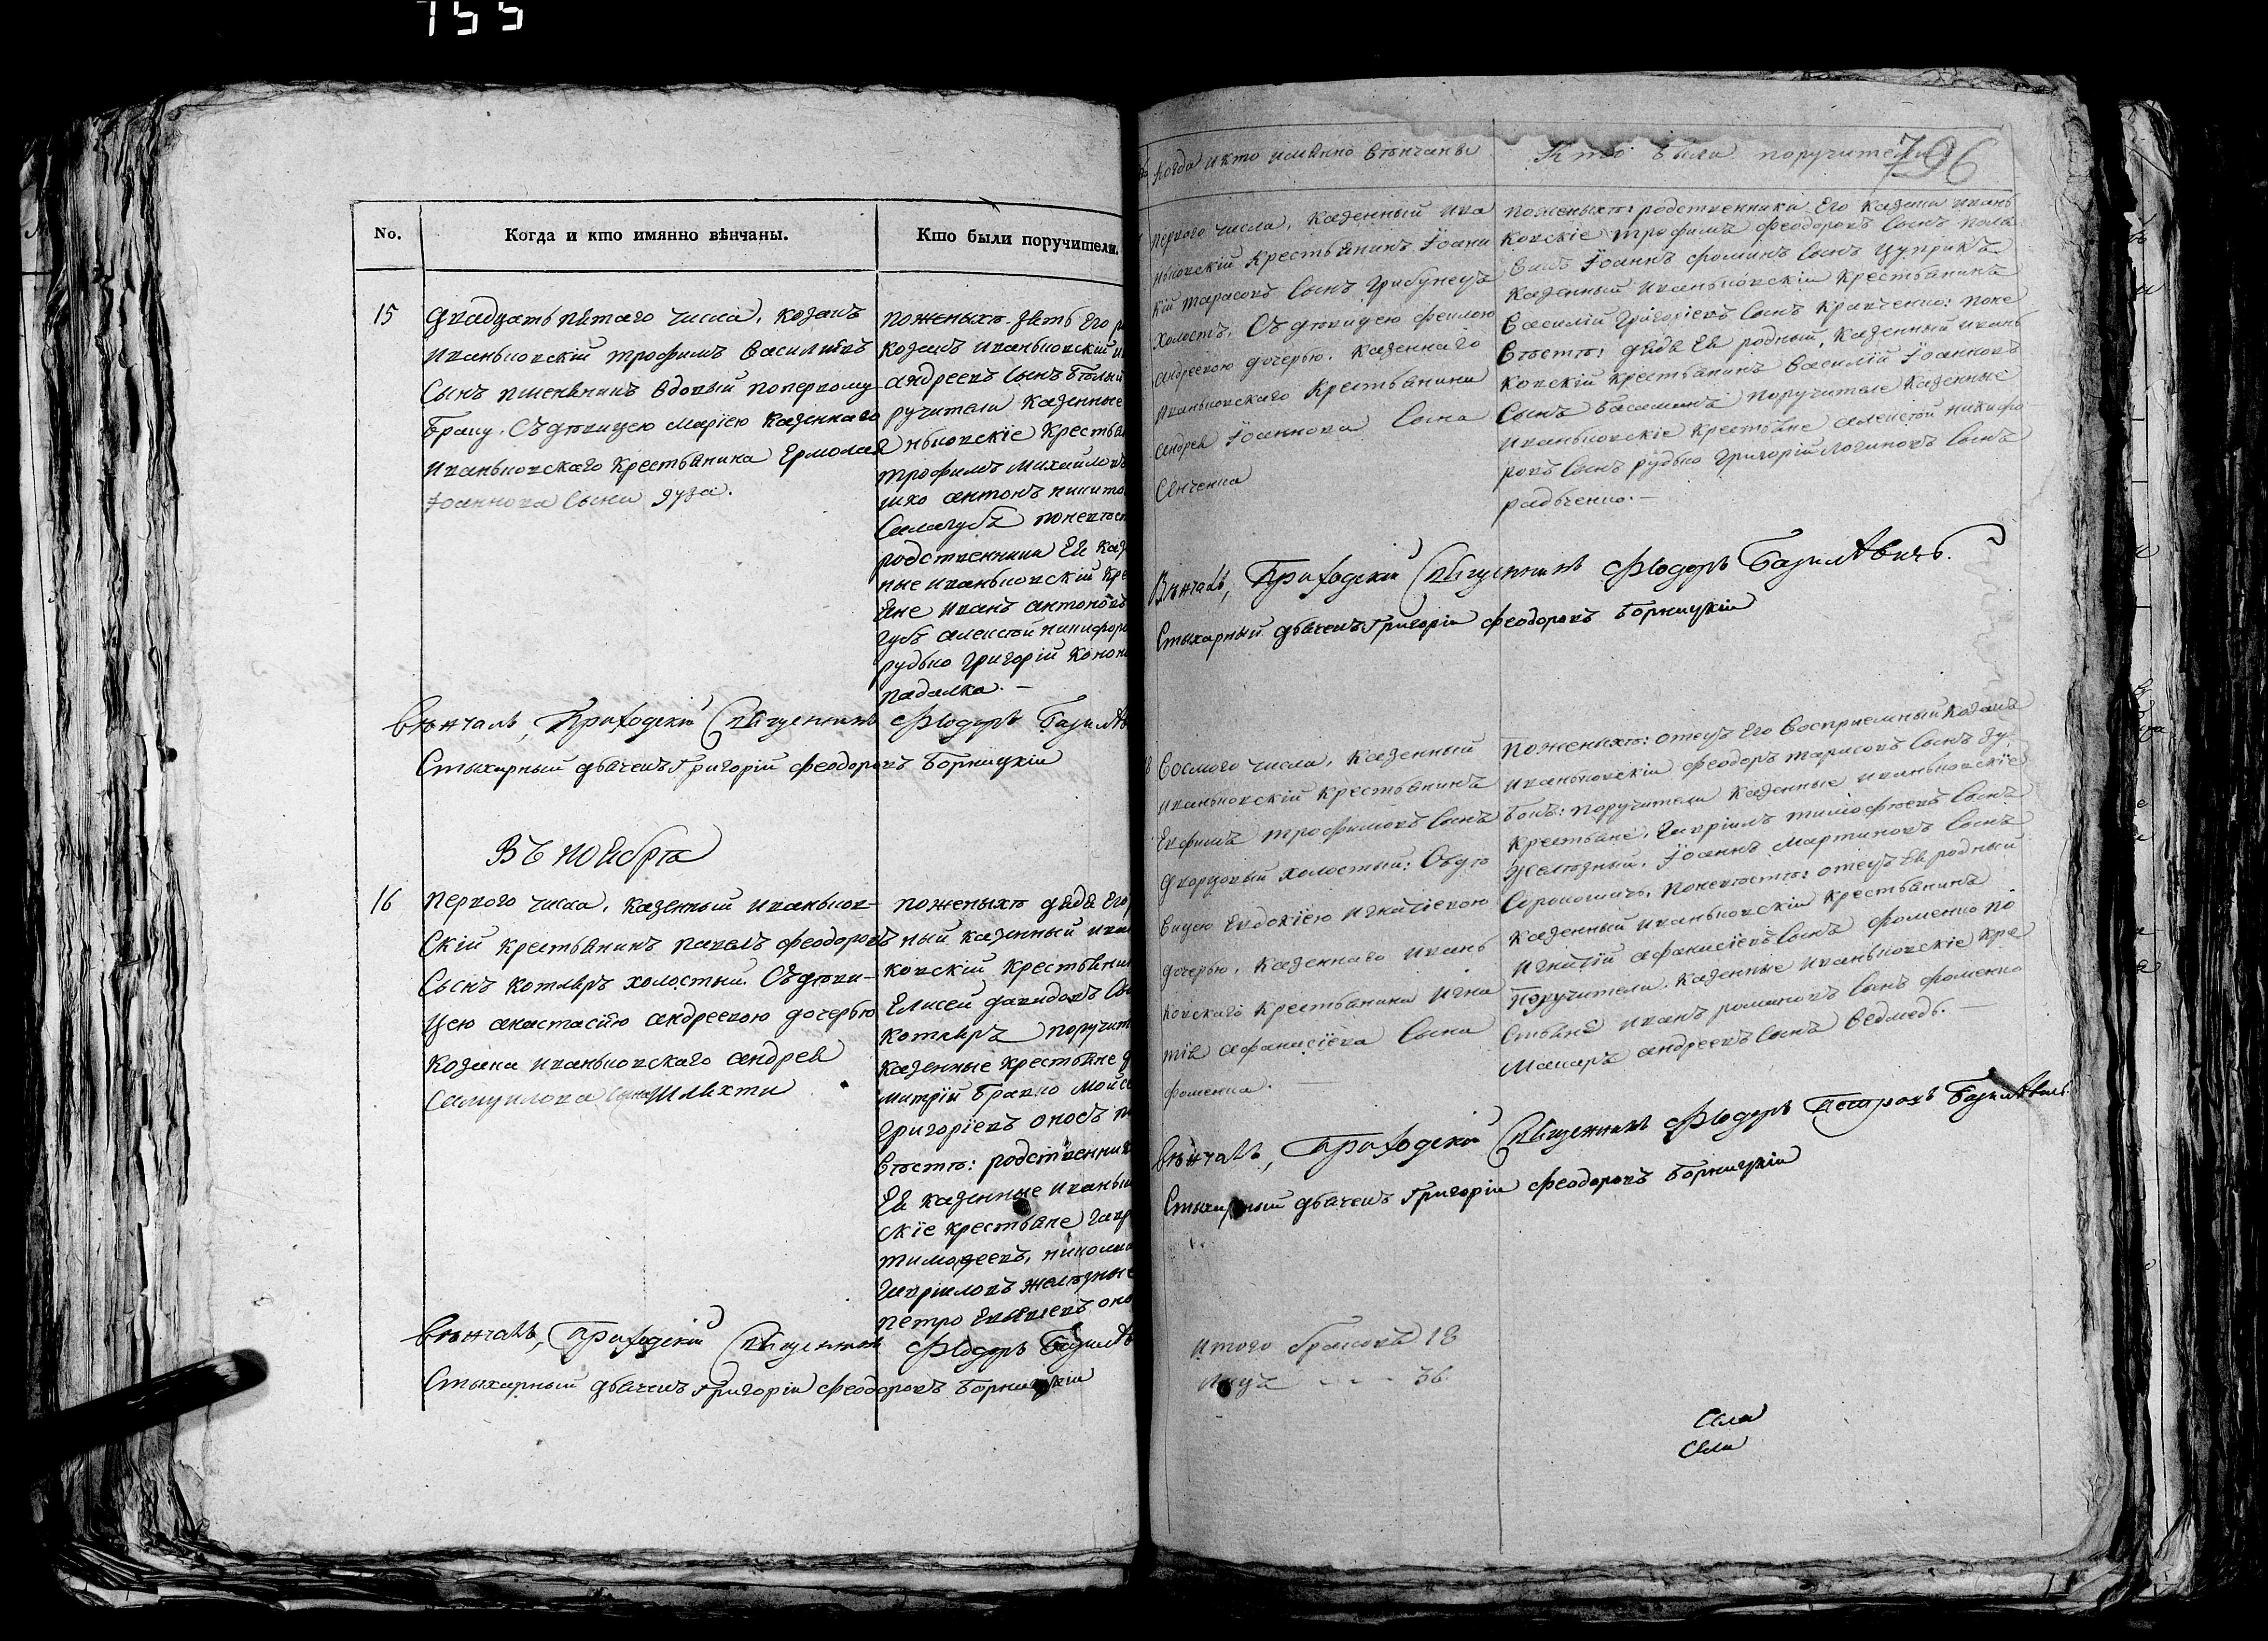 755
No.
Когда и кто имянно вѣнчаны.
Кто были поручители.
15
двадцать пятаго числа, козакъ
иваньковскій трофимъ василіевъ
сынъ пшеничникъ вдовый поперvому
браку. Съ дѣвицею маріею казеннаго
иваньковскаго крестьянина Ермолая
Іоаннова сына зуза.
поженыхѣ зять его
козакъ иваньковскій
андреевъ сынъ бѣлый
ручители казенные
ньковскіе крестья
трофимъ михаиловъ
антонъ никито
Салагубъ поневѣст
родственники ея каз
ные иваньковскій кре
яне иванъ антоновъ
губъ алексѣй никифоро
рудько григорій конон
падалка. —
Вѣнчалъ, Приходскій священникъ Фіодоръ Базилев
Стыхарный дьячекъ Григорій Феодоровъ Борницкій
Въ ноябрѣ
16
первого числа, казенный иваньков-
скій крестьянинъ павелъ феодоровъ
сынъ котляръ холостый. Съ дѣви-
цею анастасіею андреевою дочерью
козака иваньковскаго андрея
самуилова сына шляхти
поженыхѣ дядя его
ный казенный иван
ковскій крестьянин
Елисей давидовъ сы
котляръ поручит
казенные крестьяне д
митрій бравко мойсе
григоріевъ оносъ
вѣстѣ: родственник
ея казенные иваньк
скіе крестьяне гавр
тимофеевъ, никола
гавріиловъ желѣзные
петро
Вѣнчалъ, Приходскій священникъ Фіодоръ Базилев
Стыхарный дьячекъ Григорій Феодоровъ Борницкій
796
Когда и кто имянно вѣнчаны
Кто были поручители
первого числа, казенный ива
ньковскій крестьянинъ Іоани
кій тарасовъ сынъ грибунецъ
холостъ. Съ дѣвицею феклою
андреевою дочерью. казеннаго
иваньковскаго крестьянина
андрея Іоаннова сына
Сенченка
поженыхѣ: родственники его казаки ивань
ковскіе трофимъ феодоровъ сынъ
Іоаннъ фоминъ сынъ цуприкъ
казенный иваньковскій крестьянинъ
василій григоріевъ сынъ кравченко: поне
вѣстѣ: дядя ея родный, казенный ивань
ковскій крестьянинъ василій Іоанновъ
сынъ басаманъ поручители казенные
иваньковскіе крестьяне алексѣй никифо-
ровъ сынъ рудько григорій логиновъ сынъ
радченко. —
Вѣнчалъ, Приходскій священникъ Фіодоръ Базилевичъ.
Стыхарный дьячекъ Григорій Феодоровъ Борницкій
18
восмого числа, казенный
иваньковскій крестьянинъ
Евфимъ трофимовъ сынъ
дворцовый холостый: Съ дѣ
вицею Евдокіею игнатіевою
дочерью, казеннаго ивань
ковскаго крестьянина игна
тія афанасіева сына
фоменка. —
поженыхѣ: отецъ его восприемный козакъ
иваньковскій феодоръ тарасовъ сынъ ду-
бокъ: поручители казенные иваньковскіе
крестьяне, гавріилъ тимофѣевъ сынъ
желѣзный. Іоаннъ мартиновъ сынъ
поневѣстѣ: отецъ ея родный
казенный иваньковскій крестьянинъ
игнатій афанасіевъ сынъ фоменко по
поручители, казенные иваньковскіе кре
стьяне иванъ романовъ сынъ фоменко
макаръ андреевъ сынъ ведмедь. —
Вѣнчалъ, Приходскій священникъ Фіодоръ Петровъ Базилевичъ
Стыхарный дьячекъ Григорій Феодоровъ Борницкій
итого браковъ 18
лицъ - - - 36
Села
Села